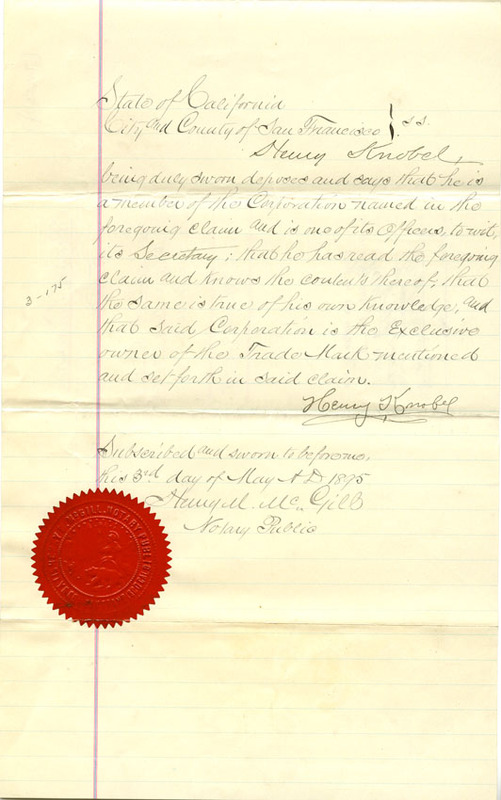 State of California
City and County of San Francisco } s.s.
Henry Knobel,
being duly sworn deposes and says that he is
a member of the Corporation named in the
foregoing claim and is one of its Officers, to wit,
its Secretary; that he has read the foregoing
claim and knows the contents thereof; that
the same is true of his own knowledge, and
that said Corporation is the Exclusive
owner of the Trade Mark mentioned
and set forth in said claim.
3-175
Henry Knobel
Subscribed and sworn to before me,
this 3rd day of May A D 1895
Henry M. McGill
Notary Public
McGILL. NOTARY PUBLIC